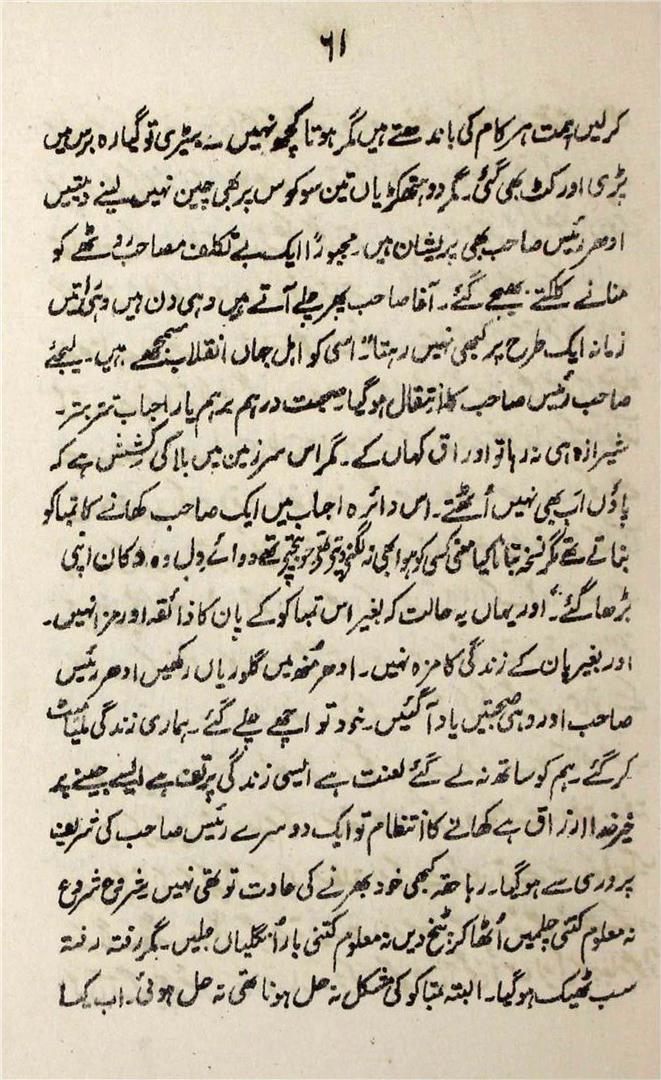 ۶۱
کرلیں ہمت ہر کام کی باندھتے ہیں مگر ہوتا کچھ نہیں۔ بیڑی تو گیارہ برس میں
پڑی اور کٹ بھی گئی۔ مگر دو ہتھکڑیاں تین سو کوس پر بھی چین نہیں لینے دیتیں
ادھر رئیس صاحب بھی پریشان ہیں۔ مجبوراً ایک بے تکلف مصاحب روٹھے کو
منانے کلکتے بھیجے گئے۔ آغا صاحب پھر چلے آتے ہیں وہی دن ہیں وہی راتیں
زمانہ ایک طرح پر کبھی نہیں رہتا اسی کو اہل جہاں انقلاب سمجھے ہیں۔ لیجئے
صاحب رئیس صاحب کا انتقال ہوگیا۔ صحبت درہم برہم یار احباب تتر بتر۔
شیرازہ ہی نہ رہا تو اوراق کہاں کے۔ مگر اس سرزمین میں بلا کی کشش ہے کہ
پاؤں اب بھی نہیں اُٹھتے۔ اس دائرہ احباب میں ایک صاحب کھانے کا تمباکو
بناتے تھے مگر نسخہ بتانا کیا معنی کسی کو ہوا بھی نہ لگنے دی تھی جو بیچتے تھے دوائے دل وہ دکان اپنی
بڑھا گئے۔" اور یہاں یہ حالت کہ بغیر اس تمباکو کے پان کا ذائقہ اور مزا نہیں۔
اور بغیر پان کے زندگی کا مزہ نہیں۔ ادھر مُنھ میں گلوریاں رکھیں ادھر رئیس
صاحب اور وہی صحبتیں یاد آگئیں۔ خود تو اچھے چلے گئے۔ ہماری زندگی ملیامیٹ
کرگئے۔ ہم کو ساتھ نہ لے گئے لعنت ہے ایسی زندگی پر تف ہے ایسے جینے پر
خیر خدا رزاق ہے کھانے کا انتظام تو ایک دوسرے رئیس صاحب کی شریف
پروری سے ہوگیا۔ رہا حقہ کبھی خود بھرنے کی عادت تو تھی نہیں شروع شروع
نہ معلوم کتنی چلمیں اُٹھا کر پٹخ دیں نہ معلوم کتنی بار اُنگلیاں جلیں۔ مگر رفتہ رفتہ
سب ٹھیک ہوگیا۔ البتہ تمباکو کی مشکل نہ حل ہونا تھی نہ حل ہوئی۔ اب کیا